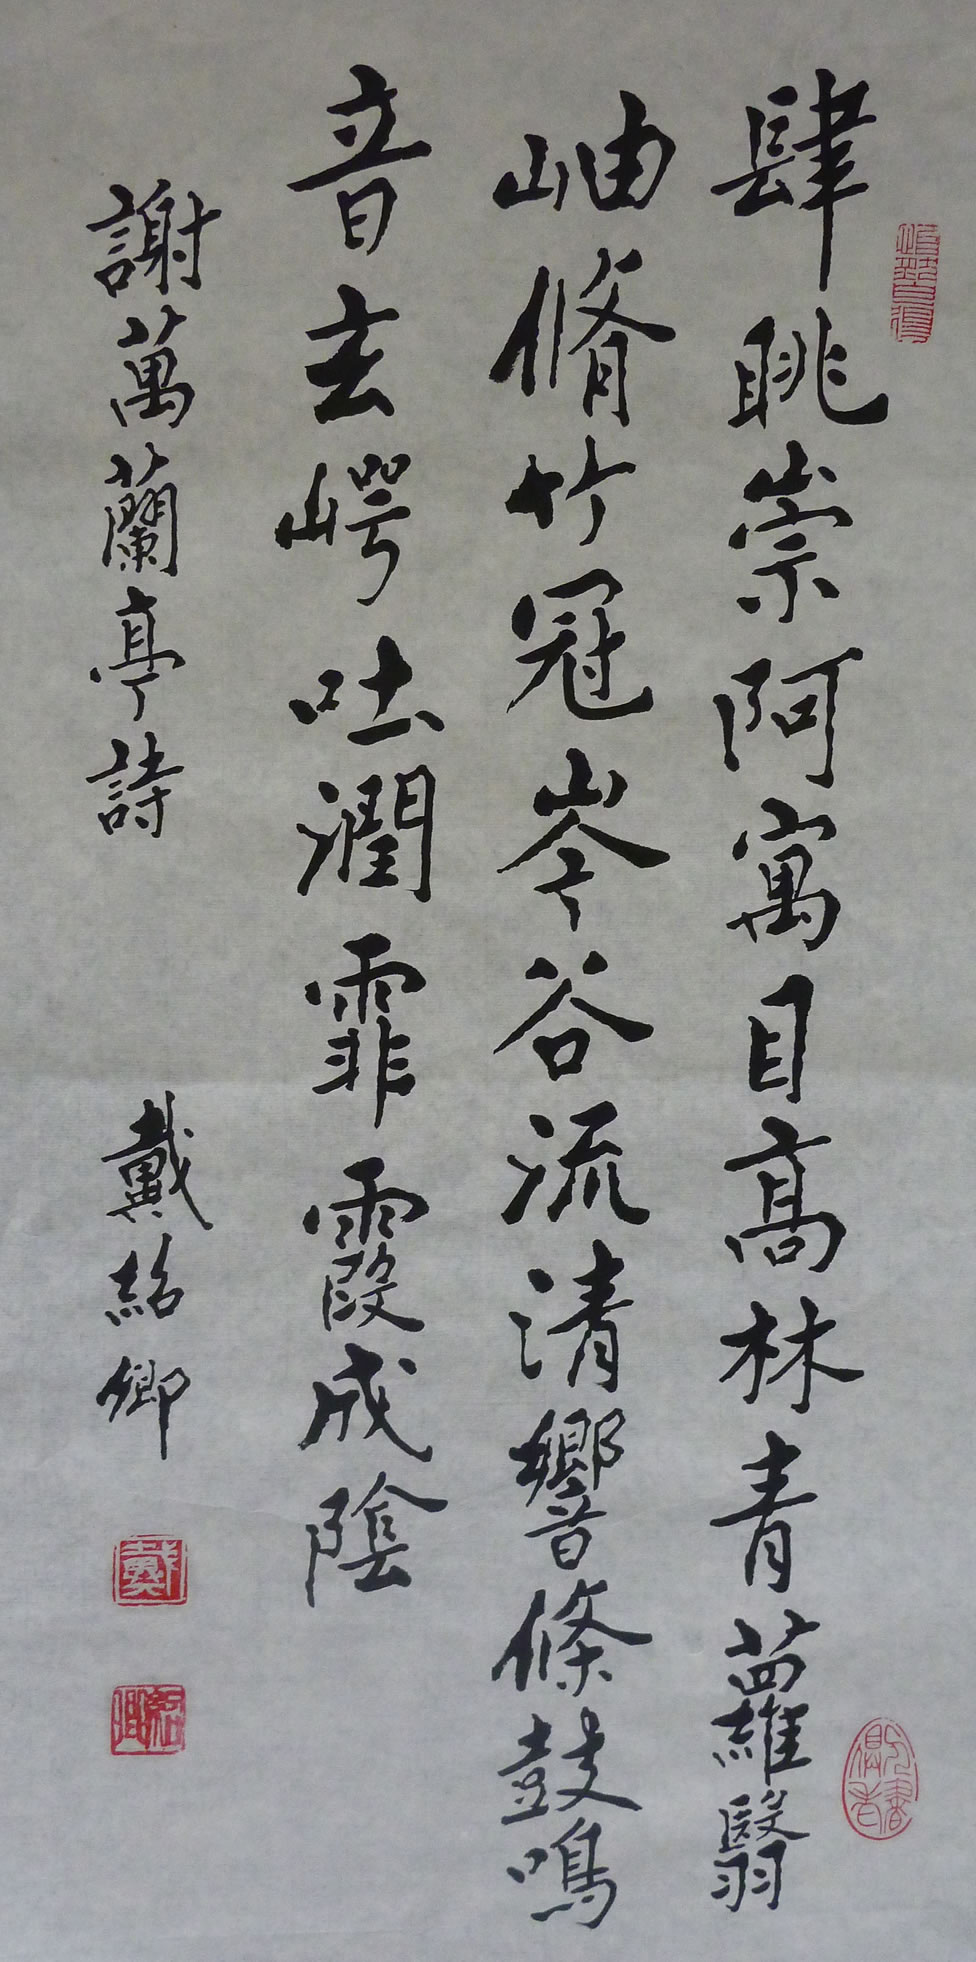 肆眺崇阿寓目高林青蘿翳
岫脩竹冠岑谷流清響條鼓鳴
音玄崿吐潤霏霧成陰
謝萬蘭亭詩
戴紹卿
戴
紹卿